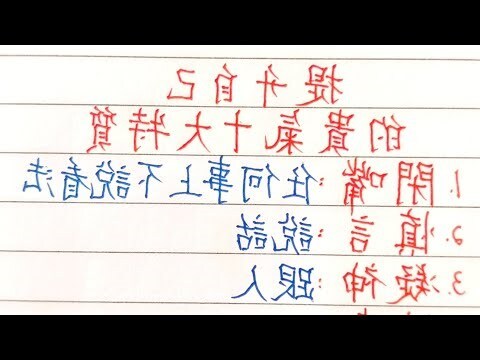 提升自己
的貴氣十大特質
1.閉嘴:任何事上不說看法
2.慎言:說話
3.凝神:跟人